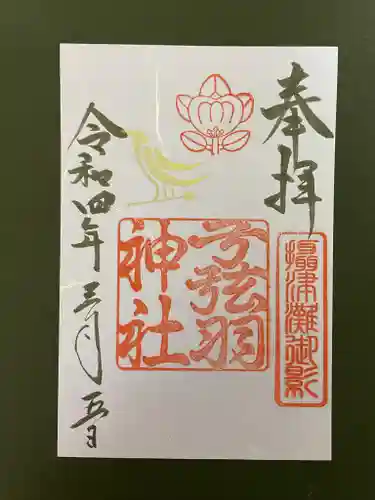 奉拝
摂津灘御影
弓弦羽
神社
令和四年三月五日